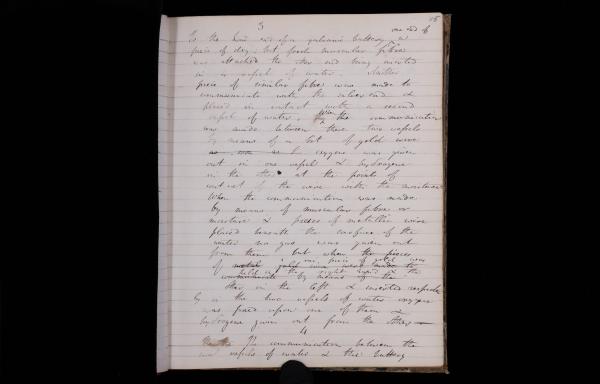 3
18
one end of
To the zinc end of a galvanic battery a
piece of dry, but fresh muscular fibre
was attached the other end being inserted
in a vessel of water. Another
piece of similar fibre was made to
communicate with the silver end &
placed in contact with a second
vessel of water. When the communication
was made between these two vessels
by means of a bit of gold wire
oxygene was given
out in one vessel & hydrogene
in the other at the points of
contact of the wire with the moisture
When the communication was made
by means of muscular fibre or
moisture & pieces of metallic wire
placed beneath the surface of the
water no gas was given out
from them but when the pieces
one piece of gold wire
of gold wire were made to
held in the right hand & the
communicate by means of the
other in the left & inserted respective
ly in the two vessels of water oxygene
was fixed upon one of them &
hydrogene given out from the other
4
The communication between the
two vessels of water & the battery